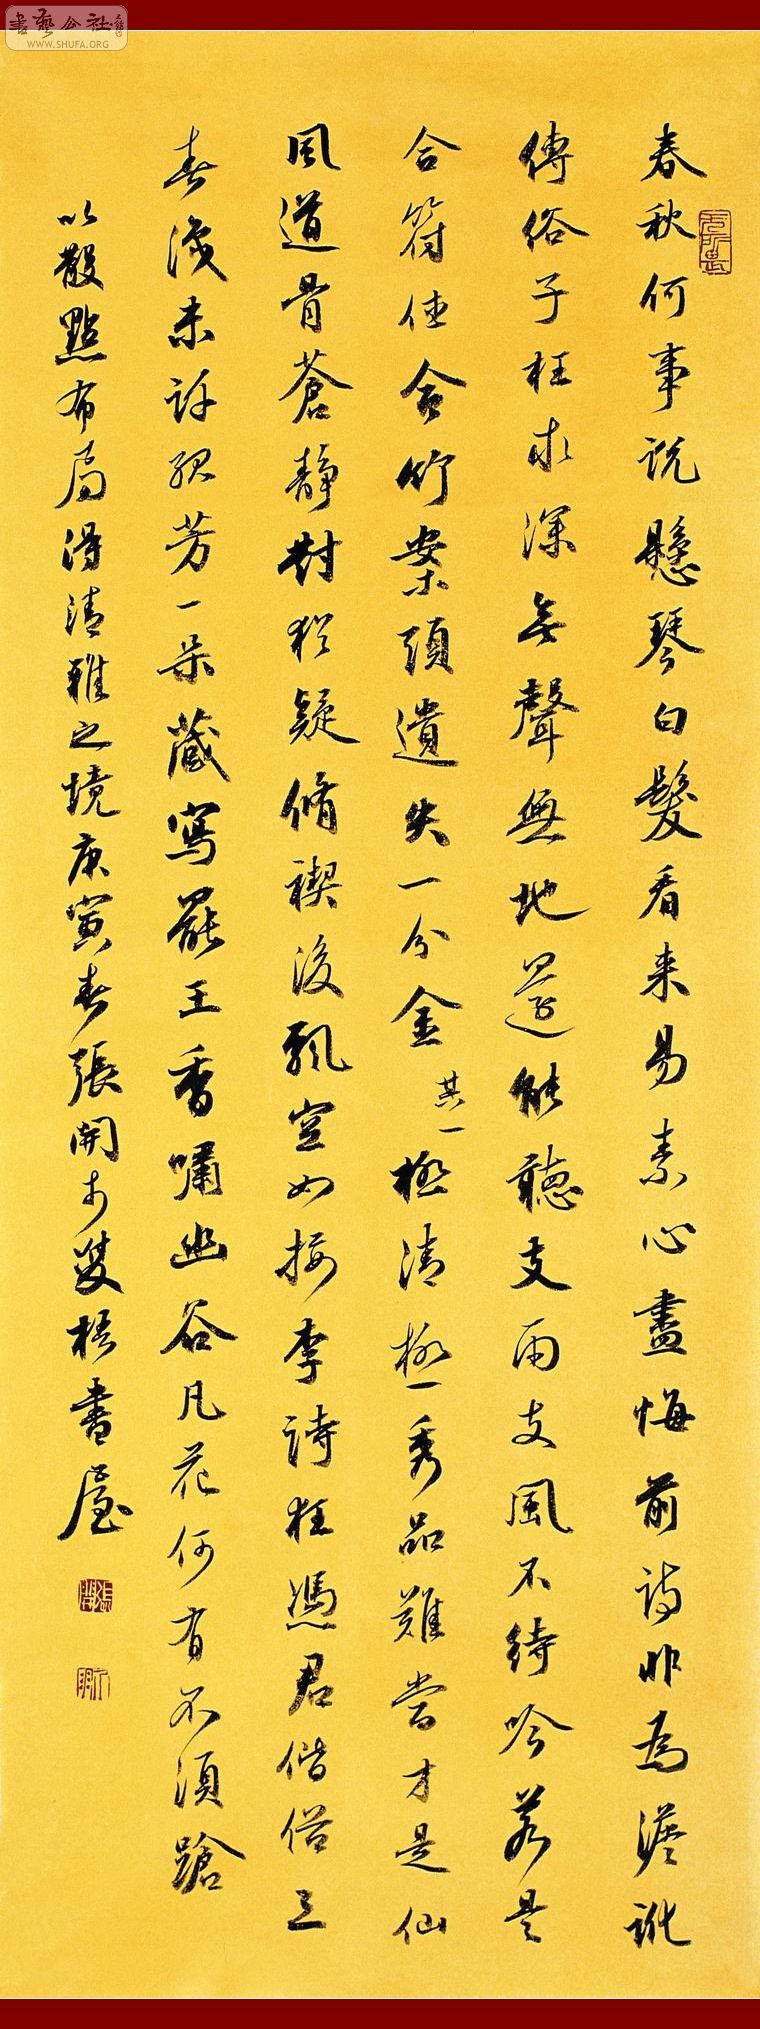 春秋何事說懸琴白髮看来易素心盡悔前詩非為澹訛
傳俗子枉求深無聲無地還能聽支雨支風不待吟若是
合符佳合竹案頭遺失一分金其一極清極秀品難嘗才是仙
風道骨蒼靜對猶疑脩禊後飄空如接李詩狂馮君偕俗三
春淺未許孤芳一朵藏寫罷王香嘯幽谷凡花何有不須蹌
以散點布局得清雅之境庚寅春張開於雙梧書屋
書藝公社
WWW.SHUFA.ORG